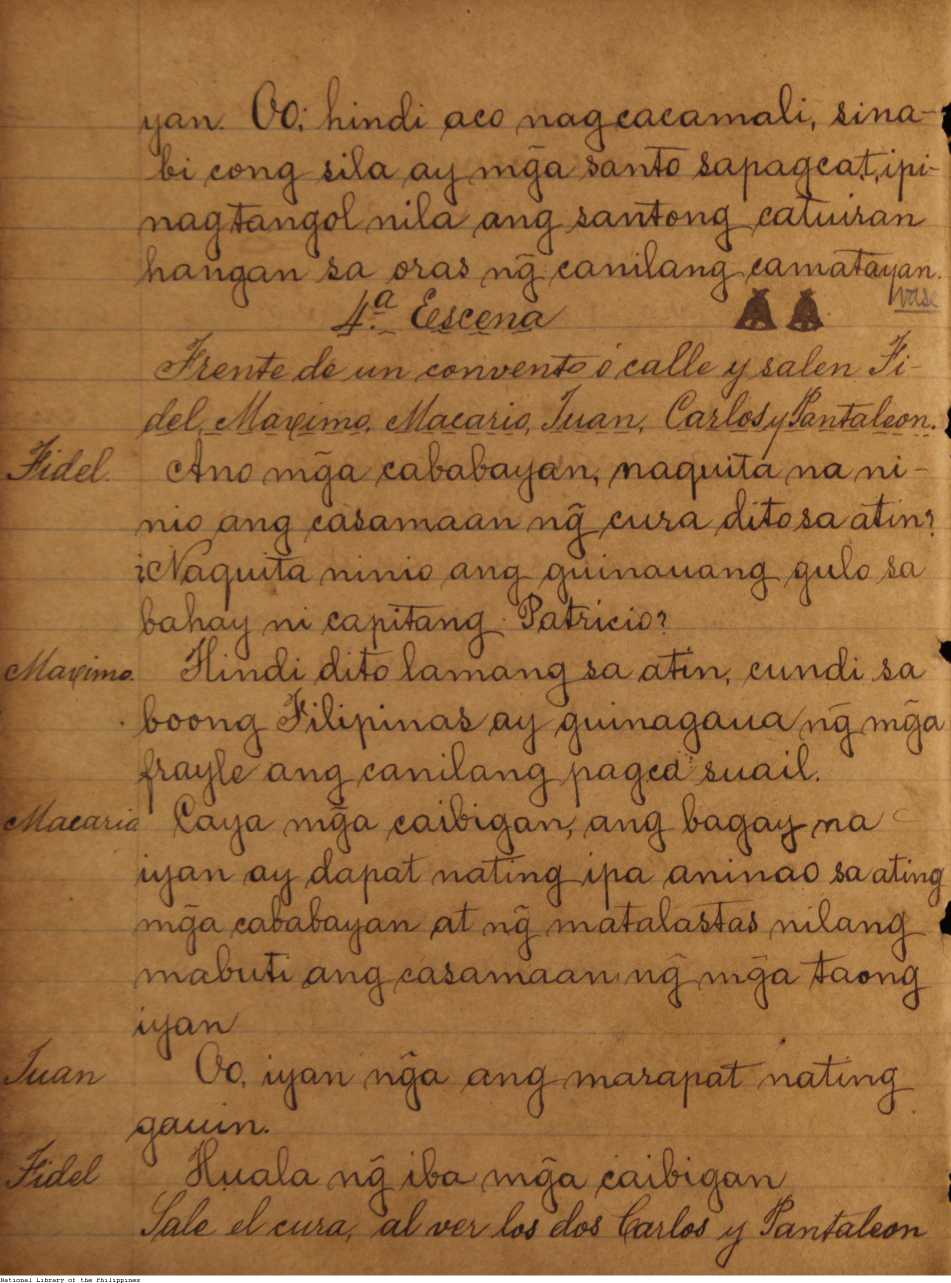 yan. Oo; hindi aco nagcacamali, sina-
bi cong sila ay mg̃a santo sapagca,t, ipi-
nagtangol nila ang santong catuiran
hangan sa oras ng̃ canilang camatayan.
vase
4.ª Escena
Frente de un convento ó calle y salen Fi-
del, Maximo, Macario, Juan, Carlos y Pantaleon.
Fidel. Ano mg̃a cababayan, naquita na ni-
nio ang casamaan ng̃ cura dito sa atin?
¿Naquita ninio ang guinauang gulo sa
bahay ni capitang Patricio?
Maximo. Hindi dito lamang sa atin, cundi sa
boong Filipinas ay guinagaua ng̃ mg̃a
frayle ang canilang pagca suail.
Macario Caya mg̃a caibigan, ang bagay na
iyan ay dapat nating ipa aninao sa ating
mg̃a cababayan at ng̃ matalastas nilang
mabuti ang casamaan ng̃ mg̃a taong
iyan
Juan Oo, iyan ng̃a ang marapat nating
gauin.
Fidel Huala ng̃ iba mg̃a caibigan
Sale el cura, al ver los dos Carlos y Pantaleon
National Library of the Philippines